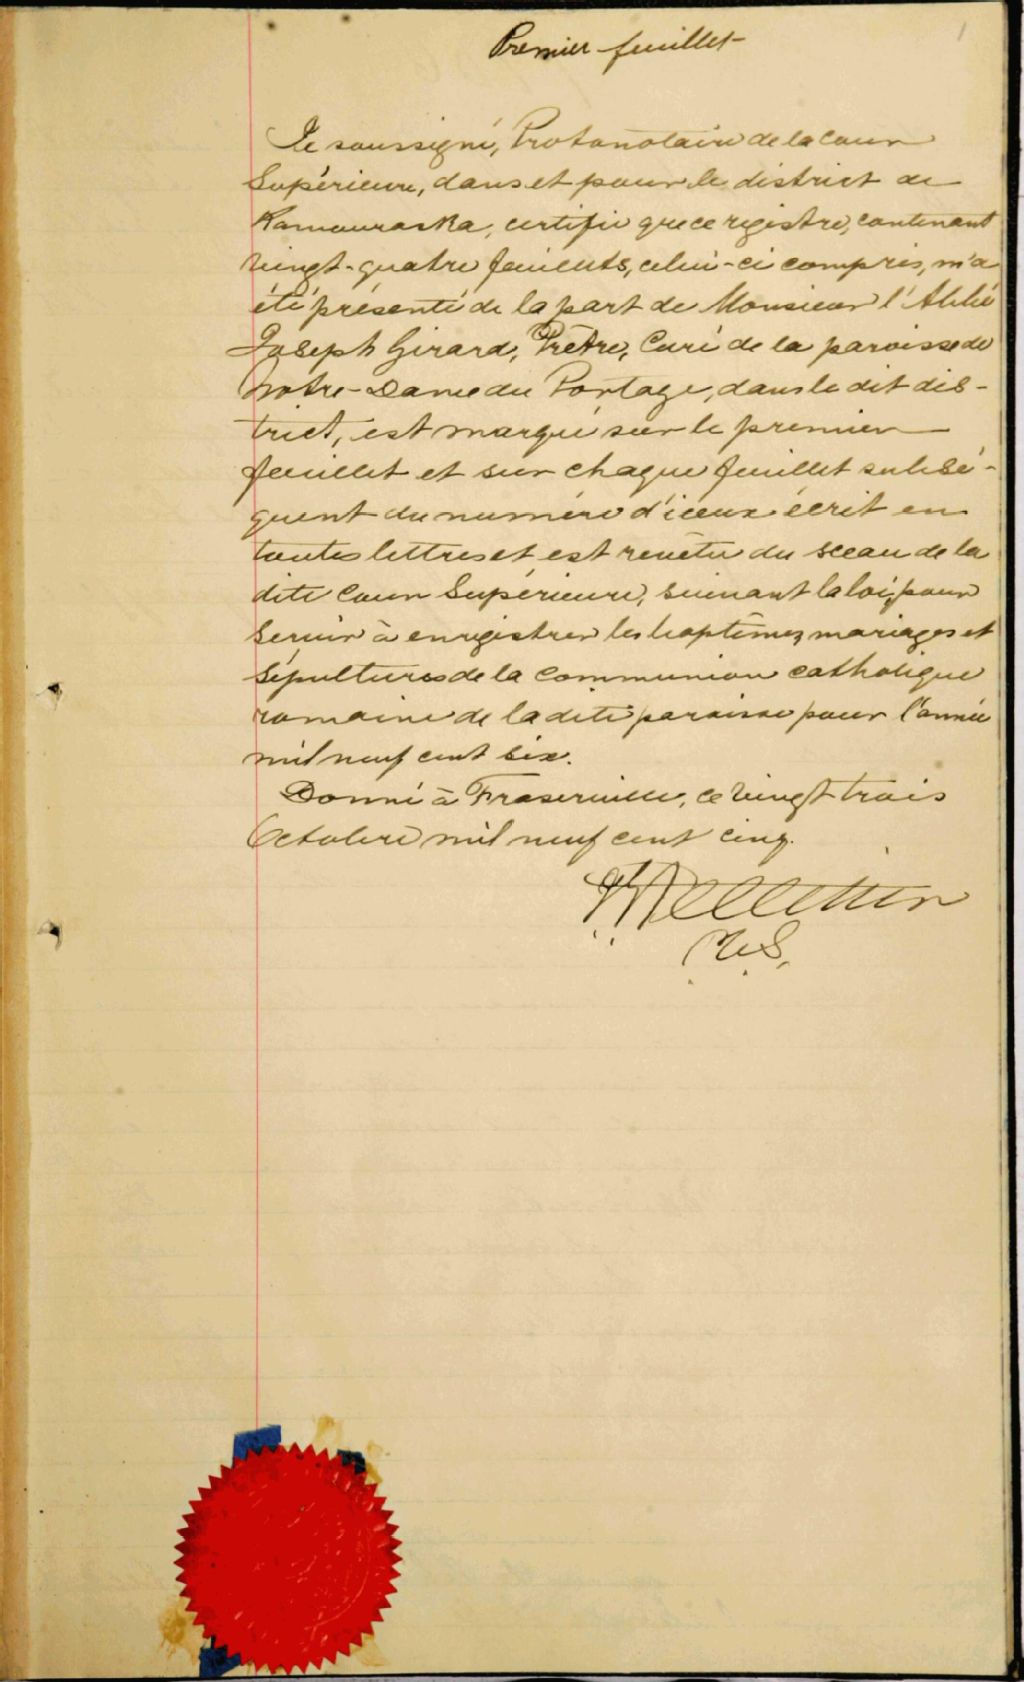 Premier feuillet
1
Je soussigné, Protonotaire de la Cour
Supérieure, dans et pour le district de
Kamouraska, certifie que ce registre, contenant
vingt-quatre feuillets, celui-ci compris, m'a
été présenté de la part de Monsieur l'Abbé
Joseph Girard, Prêtre, Curé de la paroisse de
Notre-Dame du Portage, dans le dit dis-
trict, est marqué sur le premier
feuillet et sur chaque feuillet subsé-
quent du numéro d'iceux écrit en
toutes lettres et est revêtu du sceau de la
dite Cour Supérieure, suivant la loi, pour
servir à enregistrer les baptêmes, mariages et
sépultures de la Communion catholique
romaine de la dite paroisse pour l'année
mil neuf cent six.
Donné à Fraserville, ce vingt trois
Octobre mil neuf cent cinq.
Pelletier